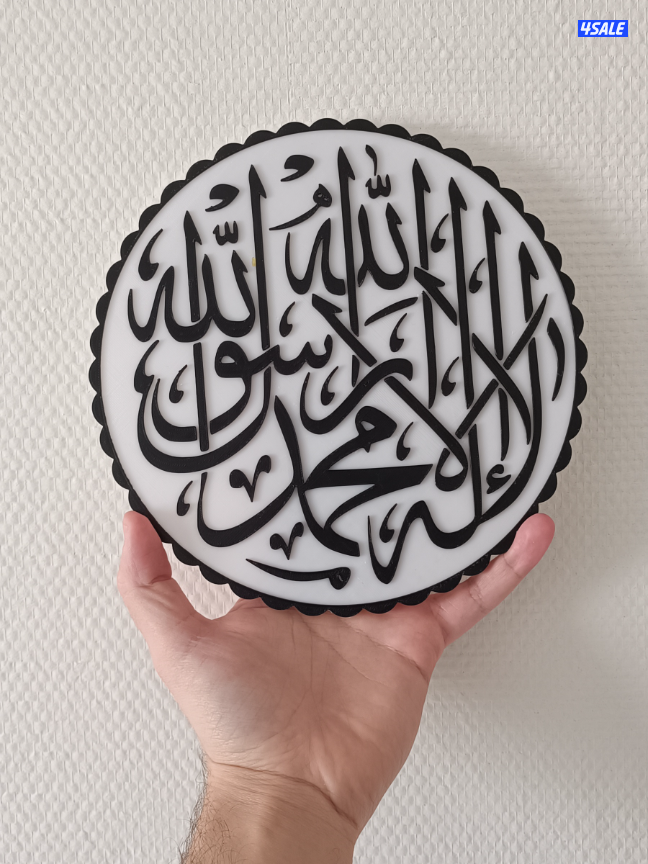 4SALE
لا إله إلا الله محمد رسول الله